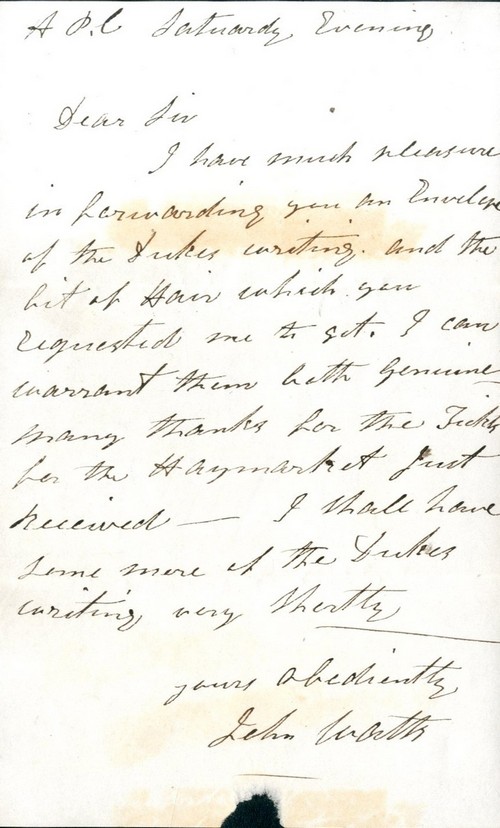 A P.C Satuardy Evening
Dear Sir
I have much pleasure
in forwarding you an Envelope
of the Dukes writing. and the
bit of Hair which you
requested me to get. I can
warrant them both Genuine
many thanks for the Tickts
for the Haymarket just
received — I shall have
some more of the Dukes
writing very Shortly
yours obediently
John Watts